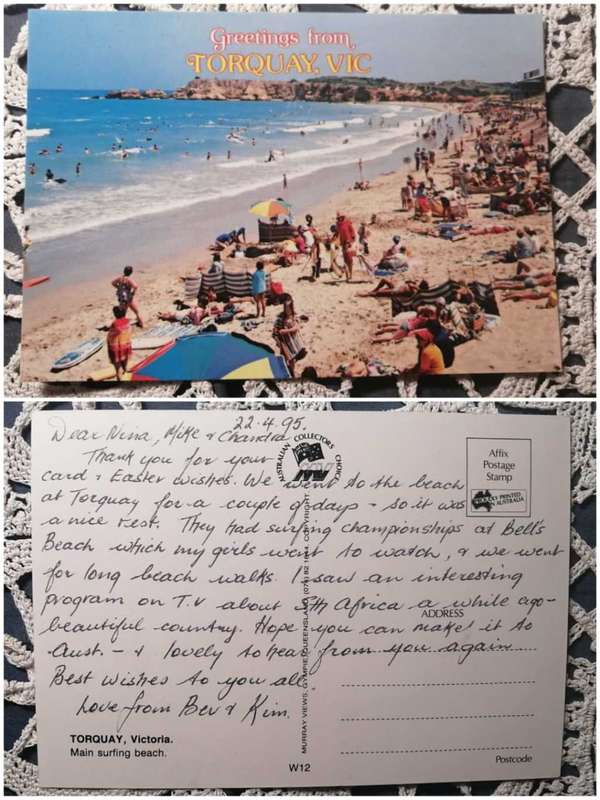 Greetings from
TORQUAY, VIC
22.4.95.
Dear Nina, Mike & Chandra
Thank you for your
card & Easter wishes. We went to the beach
at Torquay for a couple of days - so it was
a nice rest. They had surfing championships at Bell's
Beach which my girls went to watch, & we went
for long beach walks. I saw an interesting
program on T.V about Sth Africa a while ago-
beautiful country. Hope you can make it to
Aust. - & lovely to hear from you again
Best Wishes to you all,
Love from Bev & Kim.
TORQUAY, Victoria.
Main surfing beach.
AUSTRALIAN COLLECTORS CHOICE
MV
MURRAY VIEWS, GYMPIE, QUEENSLAND (074) 82 COPYRIGHT
W12
Affix
Postage
Stamp
PROUDLY PRINTED
IN AUSTRALIA
ADDRESS
Postcode